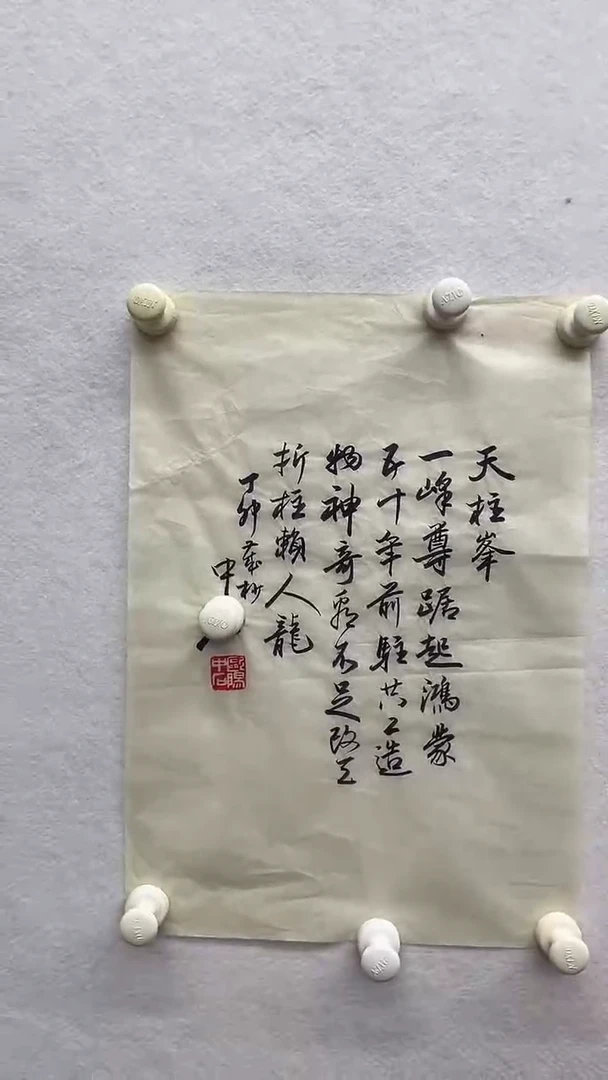 天柱峯
一峰尊踞起鴻蒙
五十年前駐共工造
物神奇看不足改天
折柱賴人龍
丁卯歲杪
中